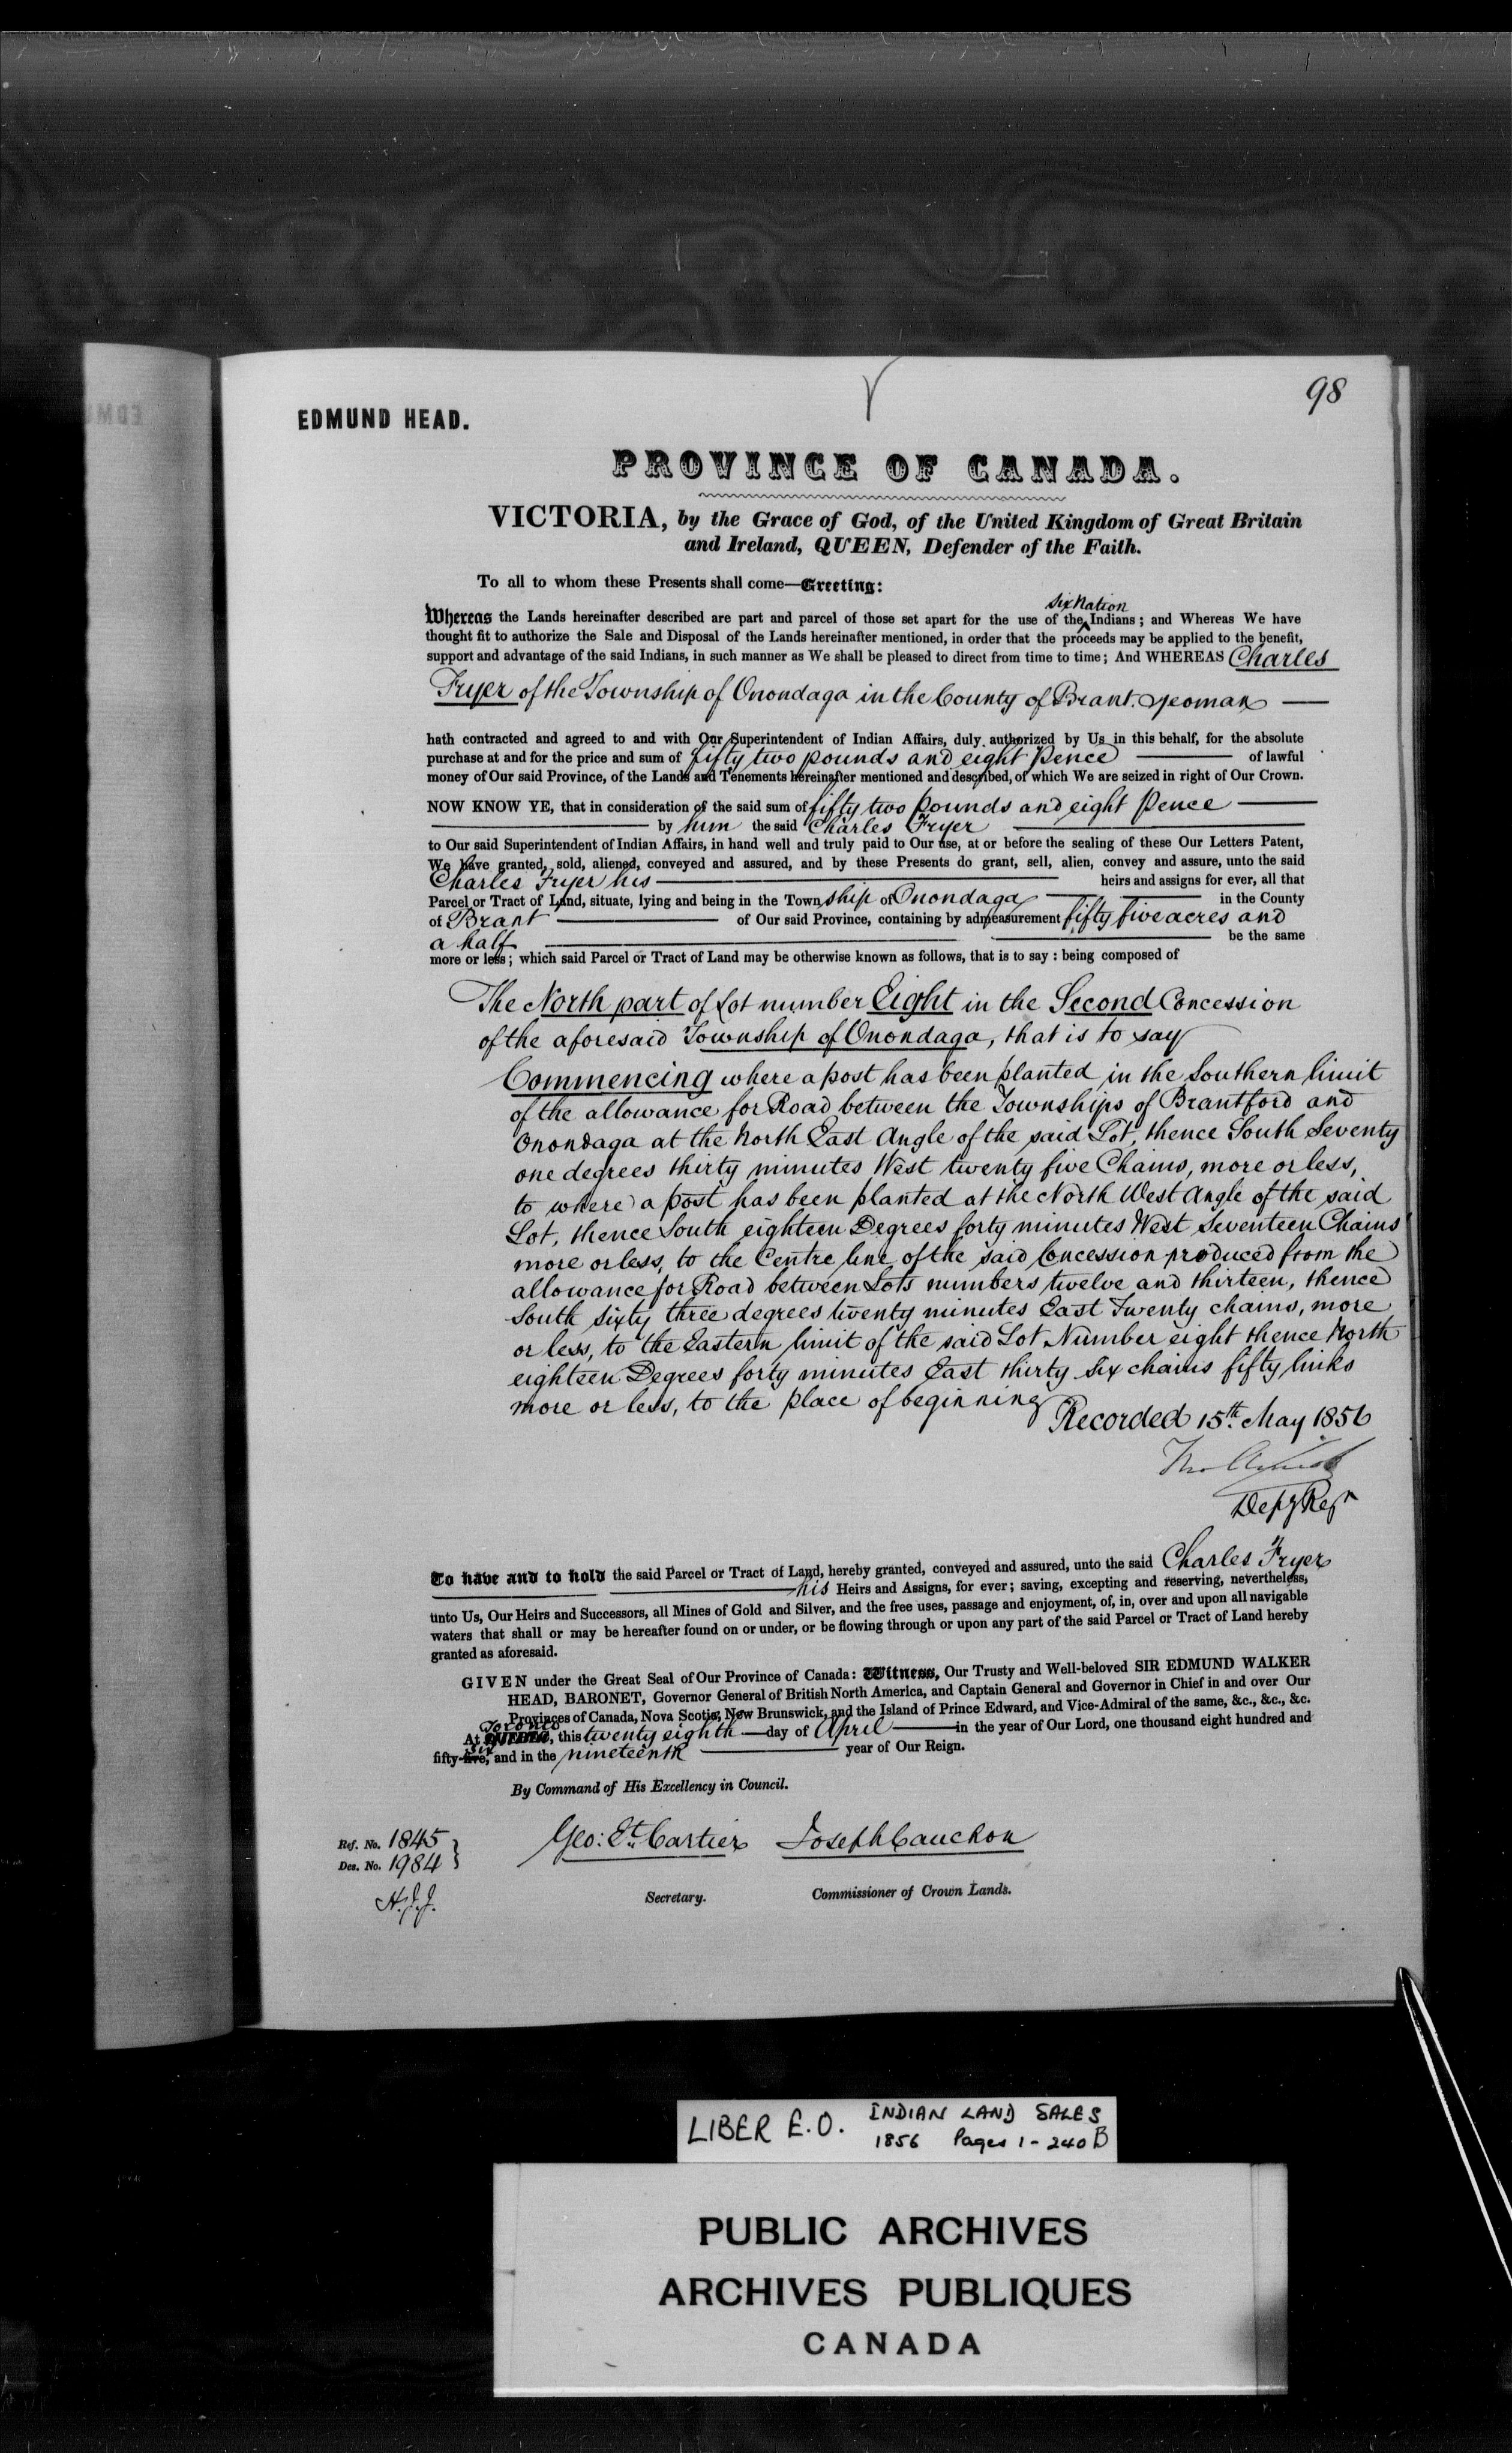 98
EDMUND HEAD.
PROVINCE OF CANADA.
VICTORIA, by the Grace of God, of the United Kingdom of Great Britain
and Ireland, QUEEN, Defender of the Faith.
To all to whom these Presents shall come—Greeting:
Six Nation
Whereas the Lands hereinafter described are part and parcel of those set apart for the use of the Indians; and Whereas We have
thought fit to authorize the Sale and Disposal of the Lands hereinafter mentioned, in order that the proceeds may be applied to the benefit,
support and advantage of the said Indians, in such manner as We shall be pleased to direct from time to time; And WHEREAS Charles
Fryer of the Township of Onondaga in the County of Brant. Yeoman
hath contracted and agreed to and with Our Superintendent of Indian Affairs, duly authorized by Us in this behalf, for the absolute
purchase at and for the price and sum of fifty two pounds and eight Pence of lawful
money of Our said Province, of the Lands and Tenements hereinafter mentioned and described, of which We are seized in right of Our Crown.
NOW KNOW YE, that in consideration of the said sum of fifty two pounds and eight Pence
by him the said Charles Fryer
to Our said Superintendent of Indian Affairs, in hand well and truly paid to Our use, at or before the sealing of these Our Letters Patent,
We have granted, sold, aliened, conveyed and assured, and by these Presents do grant, sell, alien, convey and assure, unto the said
Charles Fryer his heirs and assigns for ever, all that
Parcel or Tract of Land, situate, lying and being in the Township of Onondaga in the County
of Brant of Our said Province, containing by admeasurement fifty five acres and
a half be the same
more or less; which said Parcel or Tract of Land may be otherwise known as follows, that is to say: being composed of
The North part of Lot number Eight in the Second Concession
of the aforesaid Township of Onondaga, that is to say
Commencing where a post has been planted in the Southern limit
of the allowance for Road between the Townships of Brantford and
Onondaga at the North East Angle of the said Lot, thence South Seventy
one degrees thirty minutes West twenty five Chains, more or less,
to where a post has been planted at the North West Angle of the said
Lot, thence South eighteen Degrees forty minutes West Seventeen Chains
more or less, to the Centre line of the said Concession produced from the
allowance for Road between Lots numbers twelve and thirteen, thence
South sixty three degrees twenty minutes East Twenty chains, more
or less, to the Eastern limit of the said Lot Number eight thence North
eighteen Degrees forty minutes East thirty six chains fifty links
more or less, to the place of beginning
Recorded 15th. May 1856
Depy Regr
To have and to hold the said Parcel or Tract of Land, hereby granted, conveyed and assured, unto the said Charles Fryer
his Heirs and Assigns, for ever; saving, excepting and reserving, nevertheless,
unto Us, Our Heirs and Successors, all Mines of Gold and Silver, and the free uses, passage and enjoyment, of, in, over and upon all navigable
waters that shall or may be hereafter found on or under, or be flowing through or upon any part of the said Parcel or Tract of Land hereby
granted as aforesaid.
GIVEN under the Great Seal of Our Province of Canada: Witness, Our Trusty and Well-beloved SIR EDMUND WALKER
HEAD, BARONET, Governor General of British North America, and Captain General and Governor in Chief in and over Our
Provinces of Canada, Nova Scotia, New Brunswick, and the Island of Prince Edward, and Vice-Admiral of the same, &c., &c., &c.
Toronto
At QUEBEC, this twenty eighth day of April in the year of Our Lord, one thousand eight hundred and
six
fifty-five, and in the nineteenth year of Our Reign.
By Command of His Excellency in Council.
Ref. No. 1845
Des. No. 1984
H.J.J.
Geo: Et. Cartier Joseph Cauchon
Secretary. Commissioner of Crown Lands.
LIBER E.O. INDIAN LAND SALES
1856 Pages 1-240B
PUBLIC ARCHIVES
ARCHIVES PUBLIQUES
CANADA